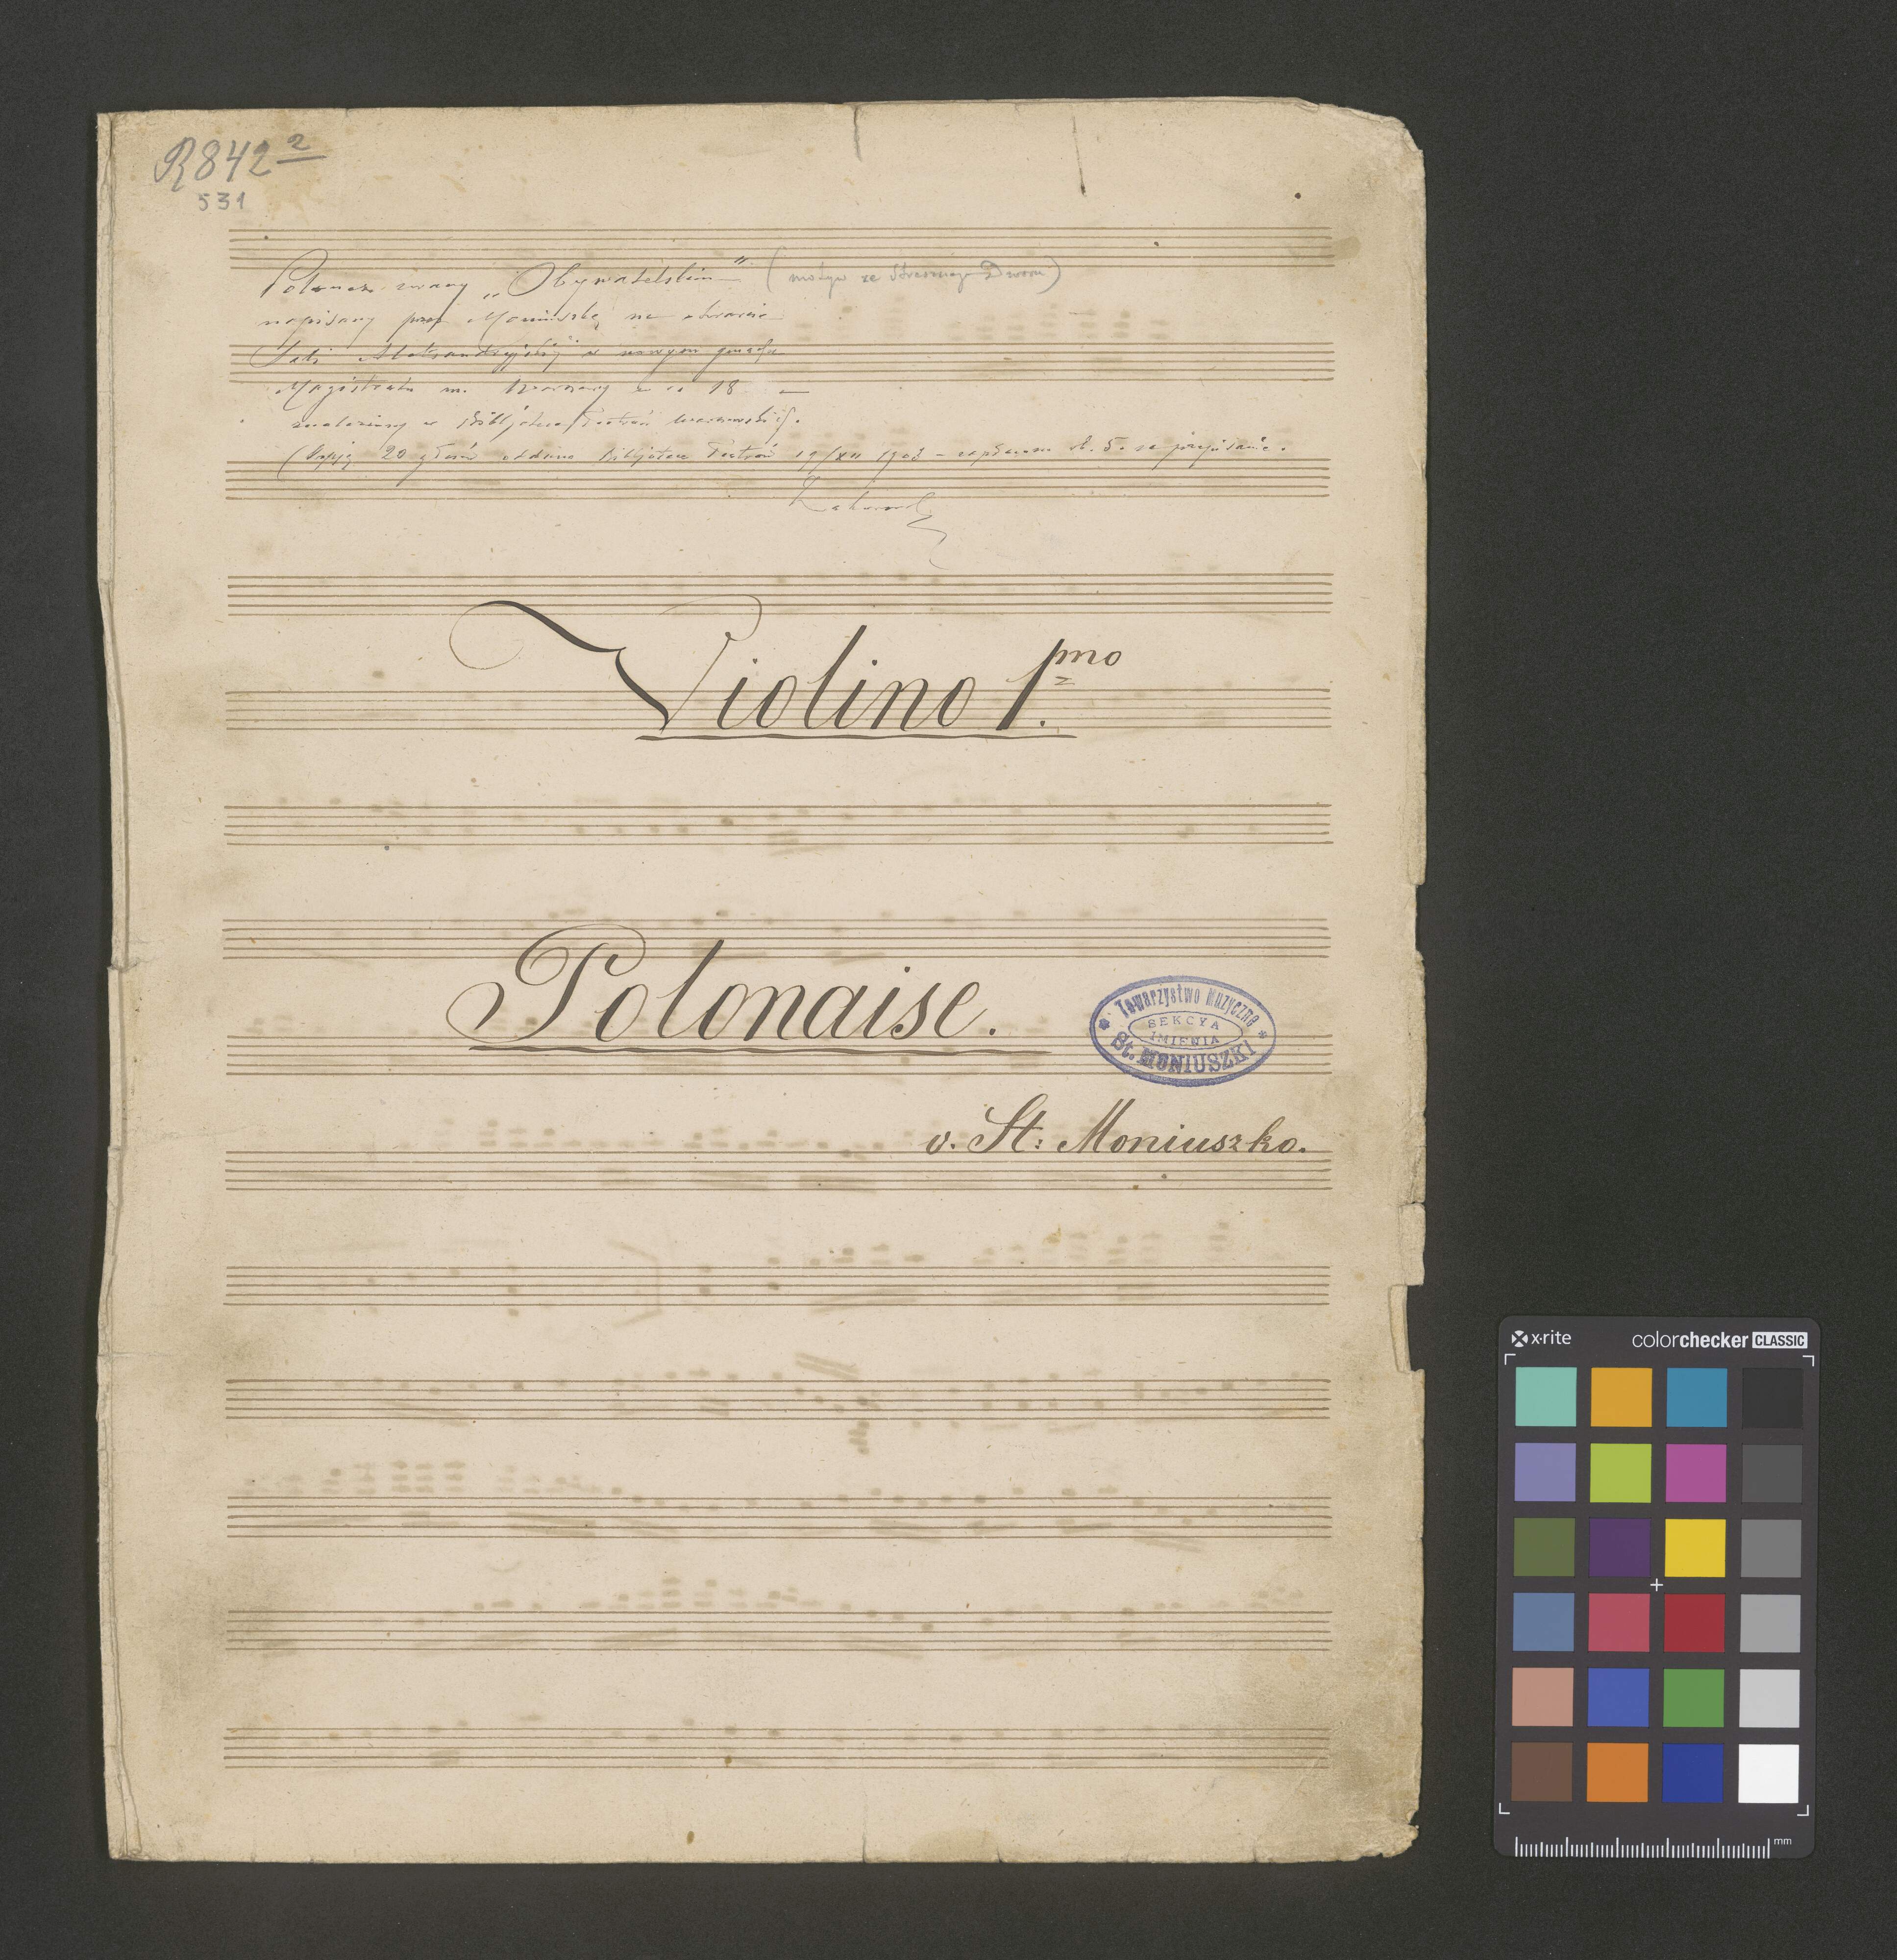 R 842 2
531
Polonez zwany „Obywatelskim" (motyw ze Strasznego Dworu)
napisany przez Moniuszkę na otwarcie
Sali Aleksandryjskiej w nowym gmachu
Magistratu m. Warszawy w r. 18 —
znaleziony w Bibljotece Teatrów warszawskich.
(Kopję 20 głosów oddano Bibljotece Teatrów 19/XII 1903 – zapłacono rb. 5. za przepisanie.
Violino 1.mo
Polonaise.
Towarzystwo Muzyczne
SEKCYA
IMIENIA
St. MONIUSZKI
v. St: Moniuszko.
x·rite colorchecker CLASSIC
mm